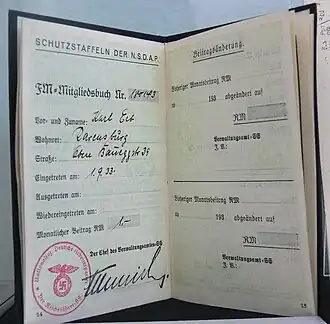 SCHUTZSTAFFELN DER N.S.D.A.P.
FM-Mitgliedsbuch Nr.
Vor- und Zuname: Karl Erb
Wohnort: Ravensburg
Straße:
Eingetreten am: 1.9.33.
Ausgetreten am:
Wiedereingetreten am:
Monatlicher Beitrag RM
Der Chef des Verwaltungsamtes-SS
14
Beitragsänderung.
Bisheriger Monatsbeitrag RM
am 193 abgeändert auf
RM
Verwaltungsamt-SS
J. V.:
Bisheriger Monatsbeitrag RM
am 193 abgeändert auf
RM
Verwaltungsamt-SS
J. V.:
15